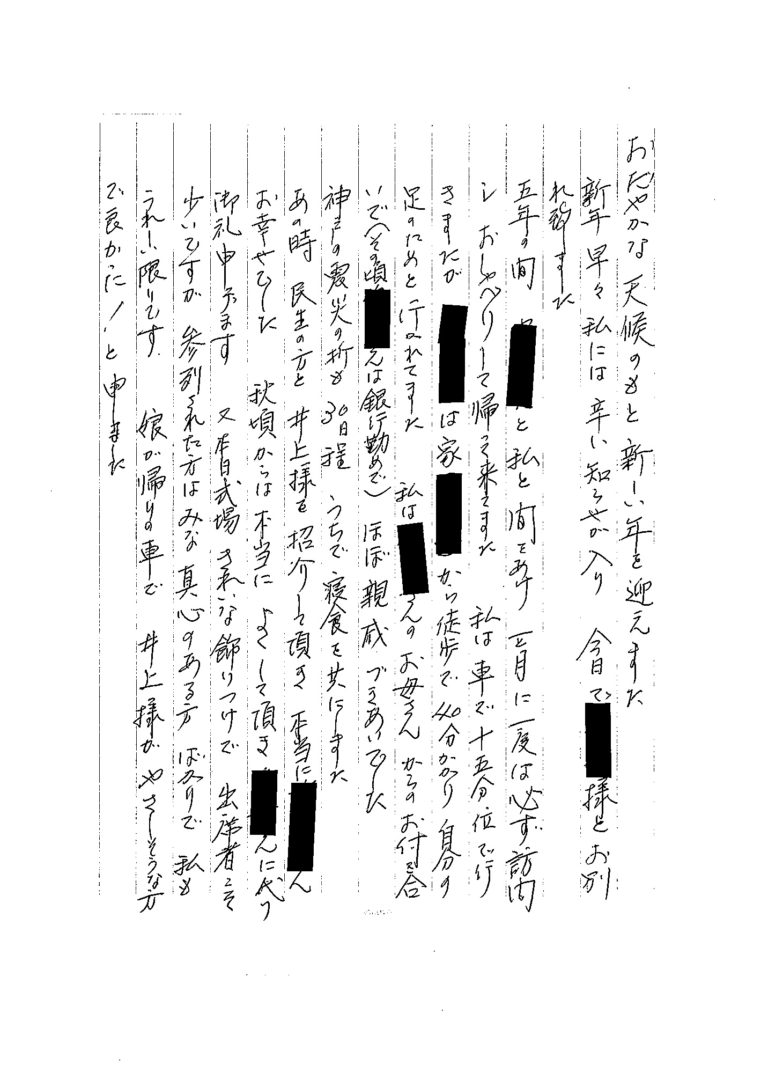 おだやかな天候のもと新しい年を迎えました
新年早々私には辛い知らせが入り 今日で 様とお別
れ致しました
五年の間 と私と間をあけ 一ヶ月に一度は必ず訪問
し おしゃべりして帰って来てました 私は車で十五分位で行
きましたが は家 から徒歩で40分かかり自分の
足のためと行かれてました 私は さんのお母さんからのお付き合
いで(その頃 えは銀行勤めで)ほぼ親戚づきあいでした
神戸の震災の折も30日程 うちで寝食を共にしました
あの時 民生の方と 井上様を紹介して頂き 本当に ん
お幸せでした 秋頃からは本当に よくして頂き んに代り
御礼申します 又本日式場 きれいな飾りつけで 出席者こそ
少いですが 参列された方はみな真心のある方ばかりで 私も
うれしい限りです。 娘が帰りの車で 井上様がやさしそうな方
で良かった!と申しました